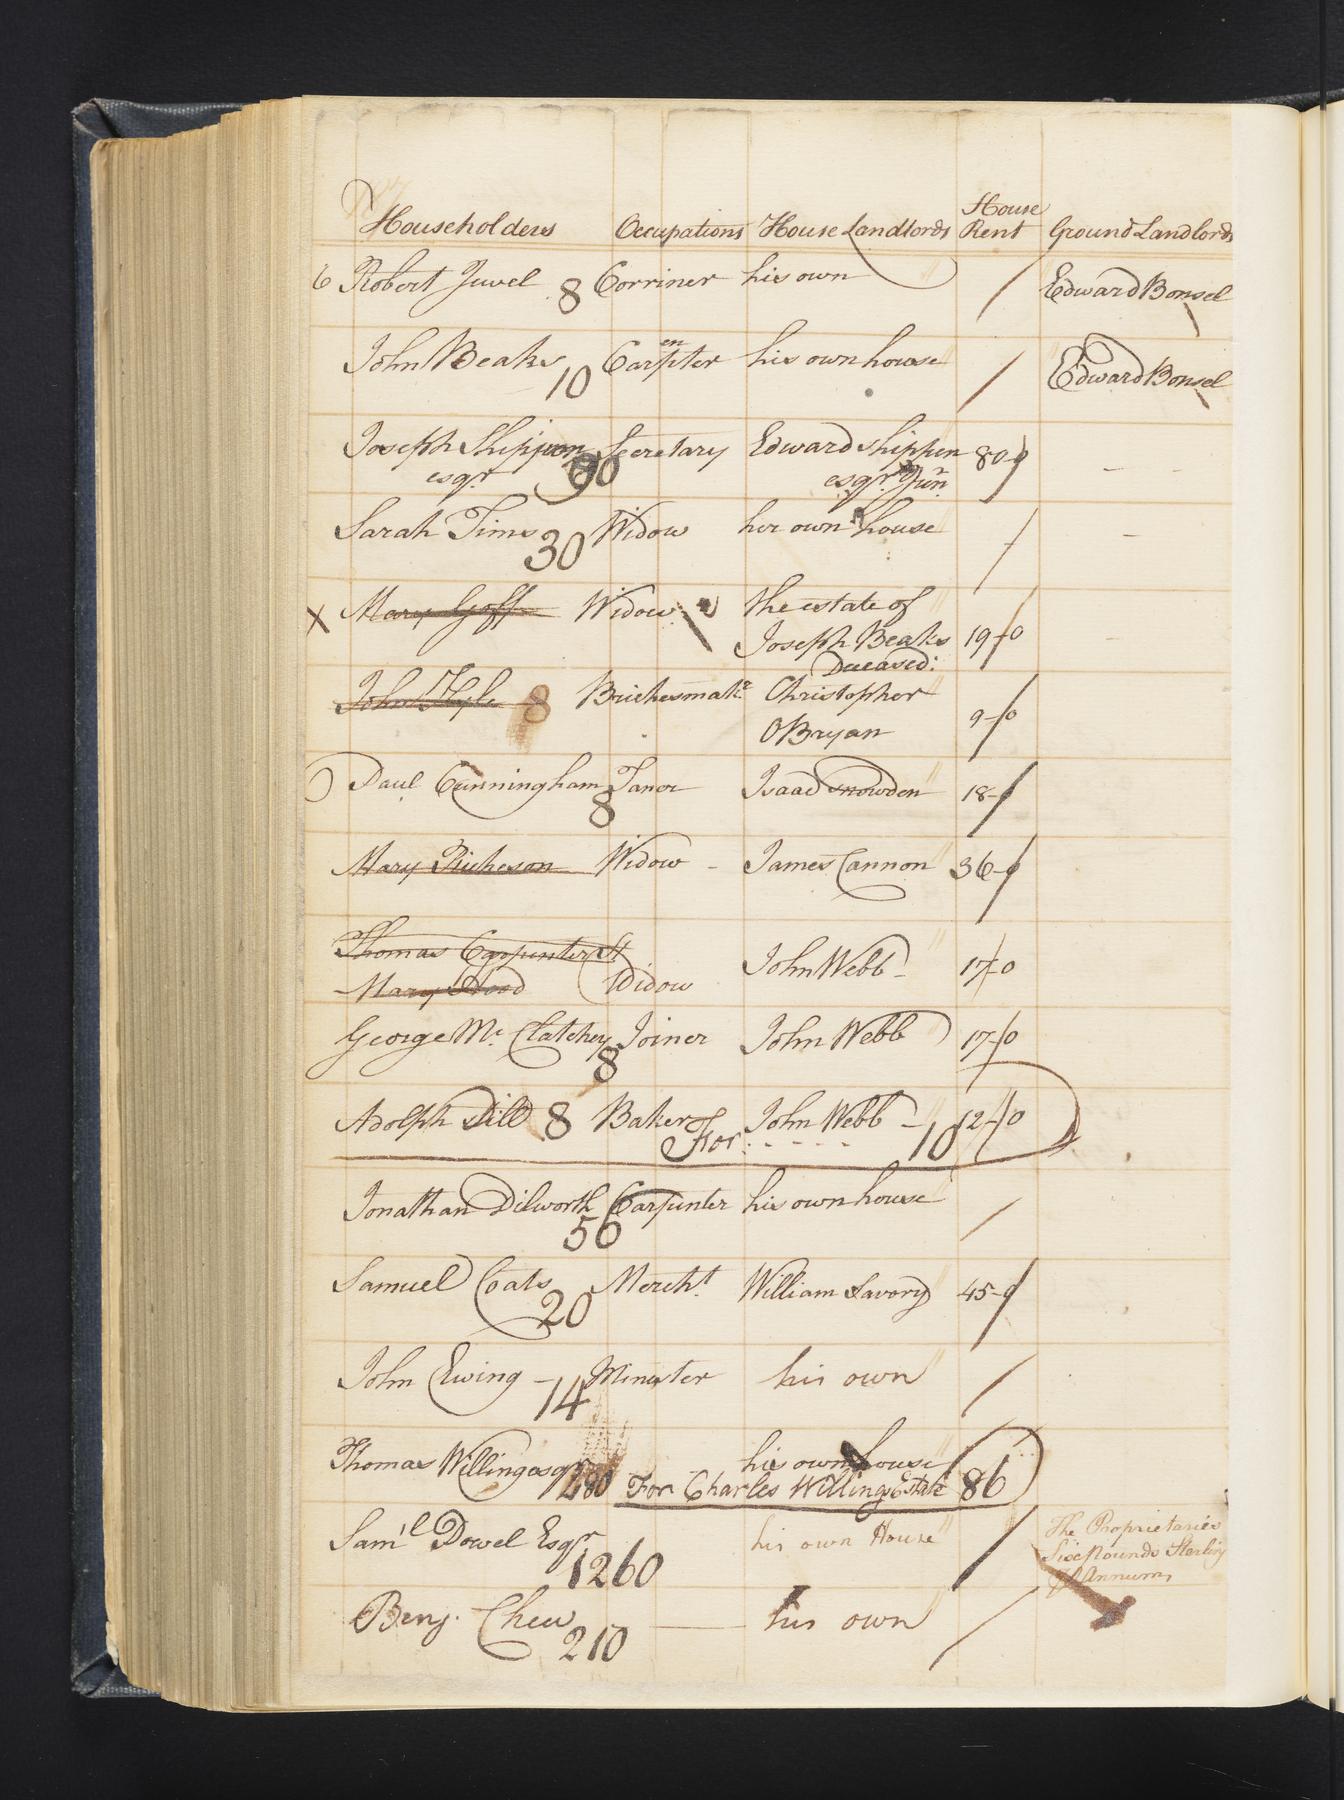 Householders Occupations House Landlords House Rent Ground Landlords
6 Robert Juvel 8 Corriner his own / Edward Bonsel
John Beaks 10 Carpenter his own house / Edward Bonsel
Joseph Shippen Secretary Edward Shippen 80-0 - -
esqr 90 esqr Jun
Sarah Tims 30 Widow her own house / -
X Mary Goff Widow the estate of
Joseph Beaks 19-0
Deceased
John 8 Brickesmakr Christopher
OBryan 9-0
Paul Cunningham 8 Taner Isaac Snowden 18-0
Mary Richeson Widow - James Cannon 36-0
Thomas Carpenter St
Mary Wood Widow John Webb - 17-0
George Mc Clatchey 8 Joiner John Webb 17-0
Adolph Dill 8 Baker John Webb - 12-0
For - - - - 10
Jonathan Dilworth 50 Carpunter his own house /
Samuel Coats 20 Mercht William Savory 45-0
John Ewing - 14 Minister his own /
Thomas Willing esqr his own house
280 For Charles Willings Estate 86
Saml Dowel Esqr 1260 his own House / The Proprietaries
Six Pounds Sterling
Annum
Benj. Chew 210 his own /